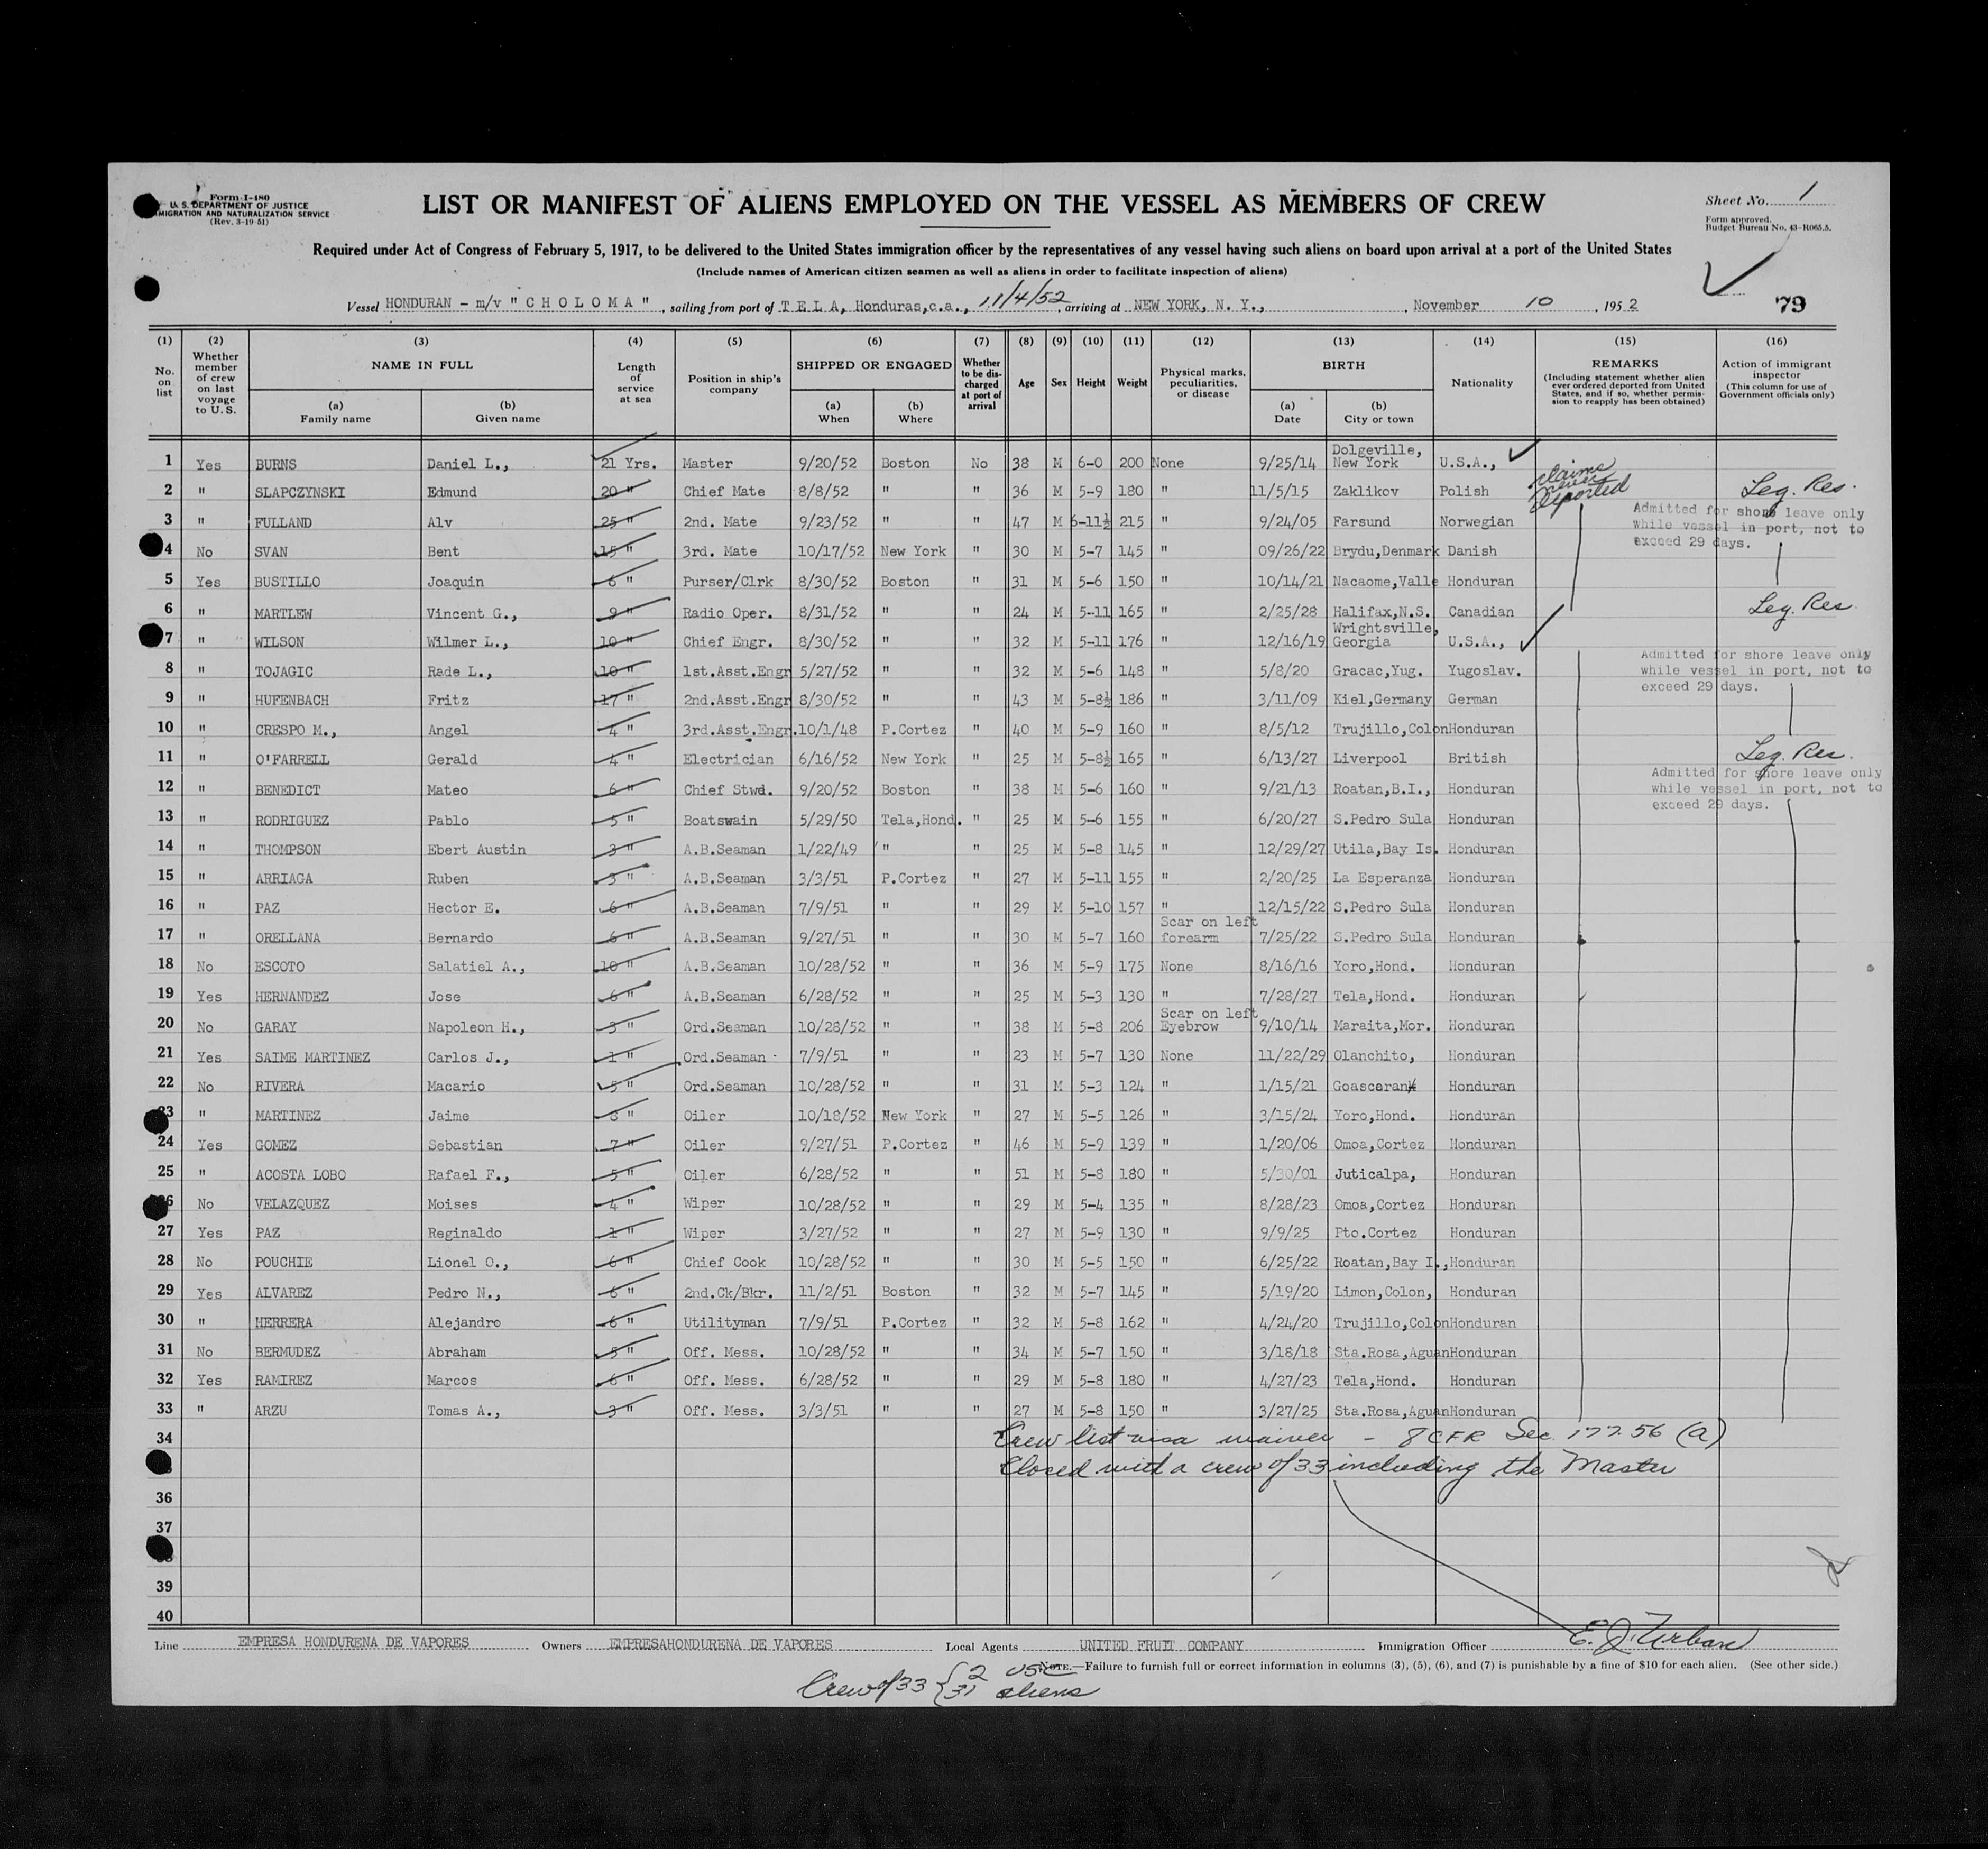 Form I-480
U. S. DEPARTMENT OF JUSTICE
IMMIGRATION AND NATURALIZATION SERVICE
(Rev. 3-19-51)
LIST OR MANIFEST OF ALIENS EMPLOYED ON THE VESSEL AS MEMBERS OF CREW
Sheet No. 1
Form approved.
Budget Bureau No. 43-R065.5.
Required under Act of Congress of February 5, 1917, to be delivered to the United States immigration officer by the representatives of any vessel having such aliens on board upon arrival at a port of the United States
(Include names of American citizen seamen as well as aliens in order to facilitate inspection of aliens)
Vessel HONDURAN - m/v " C H O L O M A " , sailing from port of T E L A, Honduras,c.a., 11/4/52, arriving at NEW YORK, N. Y., , November 10 , 195 2
79
(1) No. on list
(2) Whether member of crew on last voyage to U. S.
(3) NAME IN FULL (a) Family name (b) Given name
(4) Length of service at sea
(5) Position in ship's company
(6) SHIPPED OR ENGAGED (a) When (b) Where
(7) Whether to be discharged at port of arrival
(8) Age
(9) Sex
(10) Height
(11) Weight
(12) Physical marks, peculiarities, or disease
(13) BIRTH (a) Date (b) City or town
(14) Nationality
(15) REMARKS (Including statement whether alien ever ordered deported from United States, and if so, whether permission to reapply has been obtained)
(16) Action of immigrant inspector (This column for use of Government officials only)
1 Yes BURNS Daniel L., 21 Yrs. Master 9/20/52 Boston No 38 M 6-0 200 None 9/25/14 Dolgeville, New York U.S.A.,
claims never deported
2 " SLAPCZYNSKI Edmund 20 " Chief Mate 8/8/52 " " 36 M 5-9 180 " 11/5/15 Zaklikov Polish Leg. Res.
3 " FULLAND Alv 25 " 2nd. Mate 9/23/52 " " 47 M 6-11½ 215 " 9/24/05 Farsund Norwegian
Admitted for shore leave only
while vessel in port, not to
exceed 29 days.
4 No SVAN Bent 15 " 3rd. Mate 10/17/52 New York " 30 M 5-7 145 " 09/26/22 Brydu,Denmark Danish
5 Yes BUSTILLO Joaquin 6 " Purser/Clrk 8/30/52 Boston " 31 M 5-6 150 " 10/14/21 Nacaome,Valle Honduran
6 " MARTLEW Vincent G., 9 " Radio Oper. 8/31/52 " " 24 M 5-11 165 " 2/25/28 Halifax,N.S. Canadian Leg. Res
7 " WILSON Wilmer L., 10 " Chief Engr. 8/30/52 " " 32 M 5-11 176 " 12/16/19 Wrightsville, Georgia U.S.A.,
8 " TOJAGIC Rade L., 10 " 1st.Asst.Engr 5/27/52 " " 32 M 5-6 148 " 5/8/20 Gracac,Yug. Yugoslav.
Admitted for shore leave only
while vessel in port, not to
exceed 29 days.
9 " HUFENBACH Fritz 17 " 2nd.Asst.Engr 8/30/52 " " 43 M 5-8½ 186 " 3/11/09 Kiel,Germany German
10 " CRESPO M., Angel 4 " 3rd.Asst.Engr. 10/1/48 P.Cortez " 40 M 5-9 160 " 8/5/12 Trujillo,Colon Honduran
11 " O'FARRELL Gerald 4 " Electrician 6/16/52 New York " 25 M 5-8½ 165 " 6/13/27 Liverpool British Leg. Res.
12 " BENEDICT Mateo 6 " Chief Stwd. 9/20/52 Boston " 38 M 5-6 160 " 9/21/13 Roatan,B.I., Honduran
Admitted for shore leave only
while vessel in port, not to
exceed 29 days.
13 " RODRIGUEZ Pablo 5 " Boatswain 5/29/50 Tela,Hond. " 25 M 5-6 155 " 6/20/27 S.Pedro Sula Honduran
14 " THOMPSON Ebert Austin 3 " A.B.Seaman 1/22/49 " " 25 M 5-8 145 " 12/29/27 Utila,Bay Is. Honduran
15 " ARRIAGA Ruben 3 " A.B.Seaman 3/3/51 P.Cortez " 27 M 5-11 155 " 2/20/25 La Esperanza Honduran
16 " PAZ Hector E. 6 " A.B.Seaman 7/9/51 " " 29 M 5-10 157 " 12/15/22 S.Pedro Sula Honduran
17 " ORELLANA Bernardo 6 " A.B.Seaman 9/27/51 " " 30 M 5-7 160 Scar on left forearm 7/25/22 S.Pedro Sula Honduran
18 No ESCOTO Salatiel A., 10 " A.B.Seaman 10/28/52 " " 36 M 5-9 175 None 8/16/16 Yoro,Hond. Honduran
19 Yes HERNANDEZ Jose 6 " A.B.Seaman 6/28/52 " " 25 M 5-3 130 " 7/28/27 Tela,Hond. Honduran
20 No GARAY Napoleon H., 3 " Ord.Seaman 10/28/52 " " 38 M 5-8 206 Scar on left Eyebrow 9/10/14 Maraita,Mor. Honduran
21 Yes SAIME MARTINEZ Carlos J., 1 " Ord.Seaman 7/9/51 " " 23 M 5-7 130 None 11/22/29 Olanchito, Honduran
22 No RIVERA Macario 5 " Ord.Seaman 10/28/52 " " 31 M 5-3 124 " 1/15/21 Honduran
23 " MARTINEZ Jaime 8 " Oiler 10/18/52 New York " 27 M 5-5 126 " 3/15/24 Yoro,Hond. Honduran
24 Yes GOMEZ Sebastian 7 " Oiler 9/27/51 P.Cortez " 46 M 5-9 139 " 1/20/06 Omoa,Cortez Honduran
25 " ACOSTA LOBO Rafael F., 5 " Oiler 6/28/52 " " 51 M 5-8 180 " 5/30/01 Juticalpa, Honduran
26 No VELAZQUEZ Moises 4 " Wiper 10/28/52 " " 29 M 5-4 135 " 8/28/23 Omoa,Cortez Honduran
27 Yes PAZ Reginaldo 1 " Wiper 3/27/52 " " 27 M 5-9 130 " 9/9/25 Pto.Cortez Honduran
28 No POUCHIE Lionel O., 6 " Chief Cook 10/28/52 " " 30 M 5-5 150 " 6/25/22 Roatan,Bay I., Honduran
29 Yes ALVAREZ Pedro N., 6 " 2nd.Ck/Bkr. 11/2/51 Boston " 32 M 5-7 145 " 5/19/20 Limon,Colon, Honduran
30 " HERRERA Alejandro 6 " Utilityman 7/9/51 P.Cortez " 32 M 5-8 162 " 4/24/20 Trujillo,Colon Honduran
31 No BERMUDEZ Abraham 5 " Off. Mess. 10/28/52 " " 34 M 5-7 150 " 3/18/18 Sta.Rosa,Aguan Honduran
32 Yes RAMIREZ Marcos 6 " Off. Mess. 6/28/52 " " 29 M 5-8 180 " 4/27/23 Tela,Hond. Honduran
33 " ARZU Tomas A., 3 " Off. Mess. 3/3/51 " " 27 M 5-8 150 " 3/27/25 Sta.Rosa,Aguan Honduran
34 Crew list visa waiver - 8 CFR Sec 177.56 (a)
Closed with a crew of 33 including the Master
36
37
39
40
Line EMPRESA HONDURENA DE VAPORES Owners EMPRESAHONDURENA DE VAPORES Local Agents UNITED FRUIT COMPANY Immigration Officer E. J. Urban
NOTE.—Failure to furnish full or correct information in columns (3), (5), (6), and (7) is punishable by a fine of $10 for each alien. (See other side.)
Crew of 33 { 2 USC
31 aliens